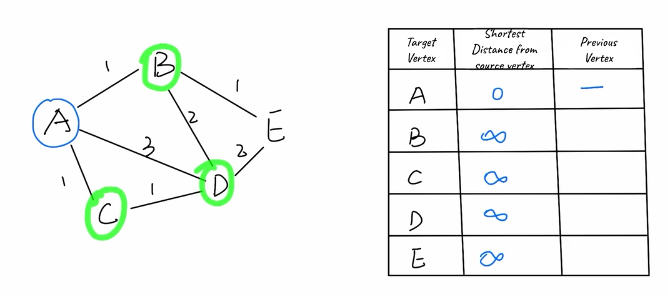 1
B
1
A
2
E
3
2
D
1
1
C
Target Vertex
Shortest Distance from source vertex
Previous Vertex
A 0 —
B ∞
C ∞
D ∞
E ∞